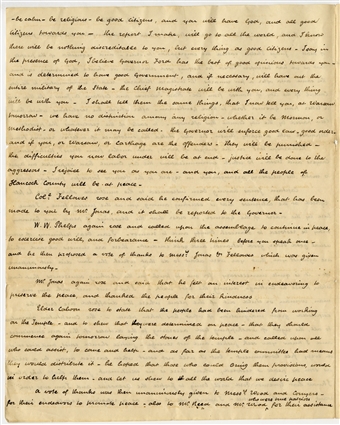 - be calm - be religious - be good citizens, and you will have God, and all good
citizens towards you - the report I make, will go to all the world, and I know
there will be nothing discreditable to you, but every thing as good citizens - I say in
the presence of God, I believe Governor Ford has the best of good opinions towards you -
and is determined to have good Government, and if necessary, will have out the
entire military of the State - the Chief Magistrate will be with you, and every thing
will be with you - I shall tell them the same things, that I now tell you, at Warsaw
tomorrow - we have no distinction among any religion - whether it be Mormon, or
Methodist - or whatever it may be called - the Governor will enforce good laws, good order
and if you, or Warsaw, or Carthage are the offenders - they will be punished -
the difficulties you now labor under will be at end - justice will be done to the
aggressor - I rejoice to see you as you are - and you, and all the people of
Hancock County will be at peace -
Colⁿ. Fellows rose and said he confirmed every sentence, that has been
made to you by Mr. Jonas, and it shall be reported to the Governor -
W. W. Phelps again rose and called upon the assemblage to continue in peace,
to exercise good will, and forbearance - think three times before you speak once -
and he then proposed a vote of thanks to Messrs. Jonas & Fellows which was given
unanimously.
Mr Jonas again rose and said that he felt an interest in endeavoring to
preserve the peace, and thanked the people for their kindness
Elder Cahoon rose to state that the people had been hindered from working
on the Temple - and to shew that they were determined on peace - that they should
commence again tomorrow laying the stones of the temple - and called upon all
who could assist, to come and help - and as far as the temple committee had means
they would distribute it - he hoped that those who could bring them provisions would
in order to help them - and let us shew to all the world that we desire peace
A vote of thanks was then unanimously given to Messrs. Wood and Conyers -
for their endeavors to promote peace - also to Mr Reed and Mr Wood for their assistance